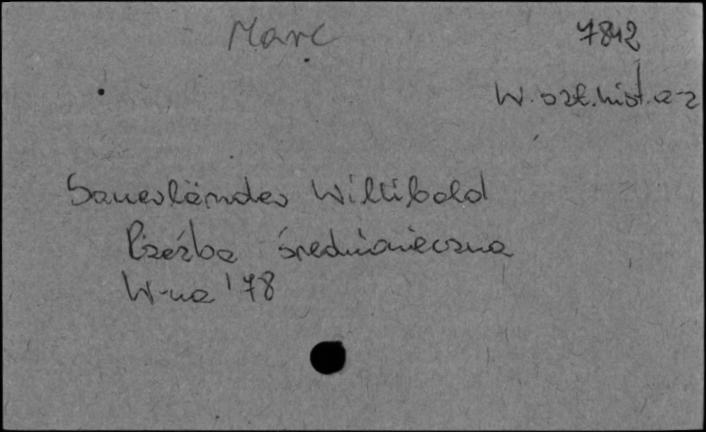 Marc
7842
W. szt. hist. a-z
Sauerländer Willibald
Rzeźba średniowieczna
W-wa '78